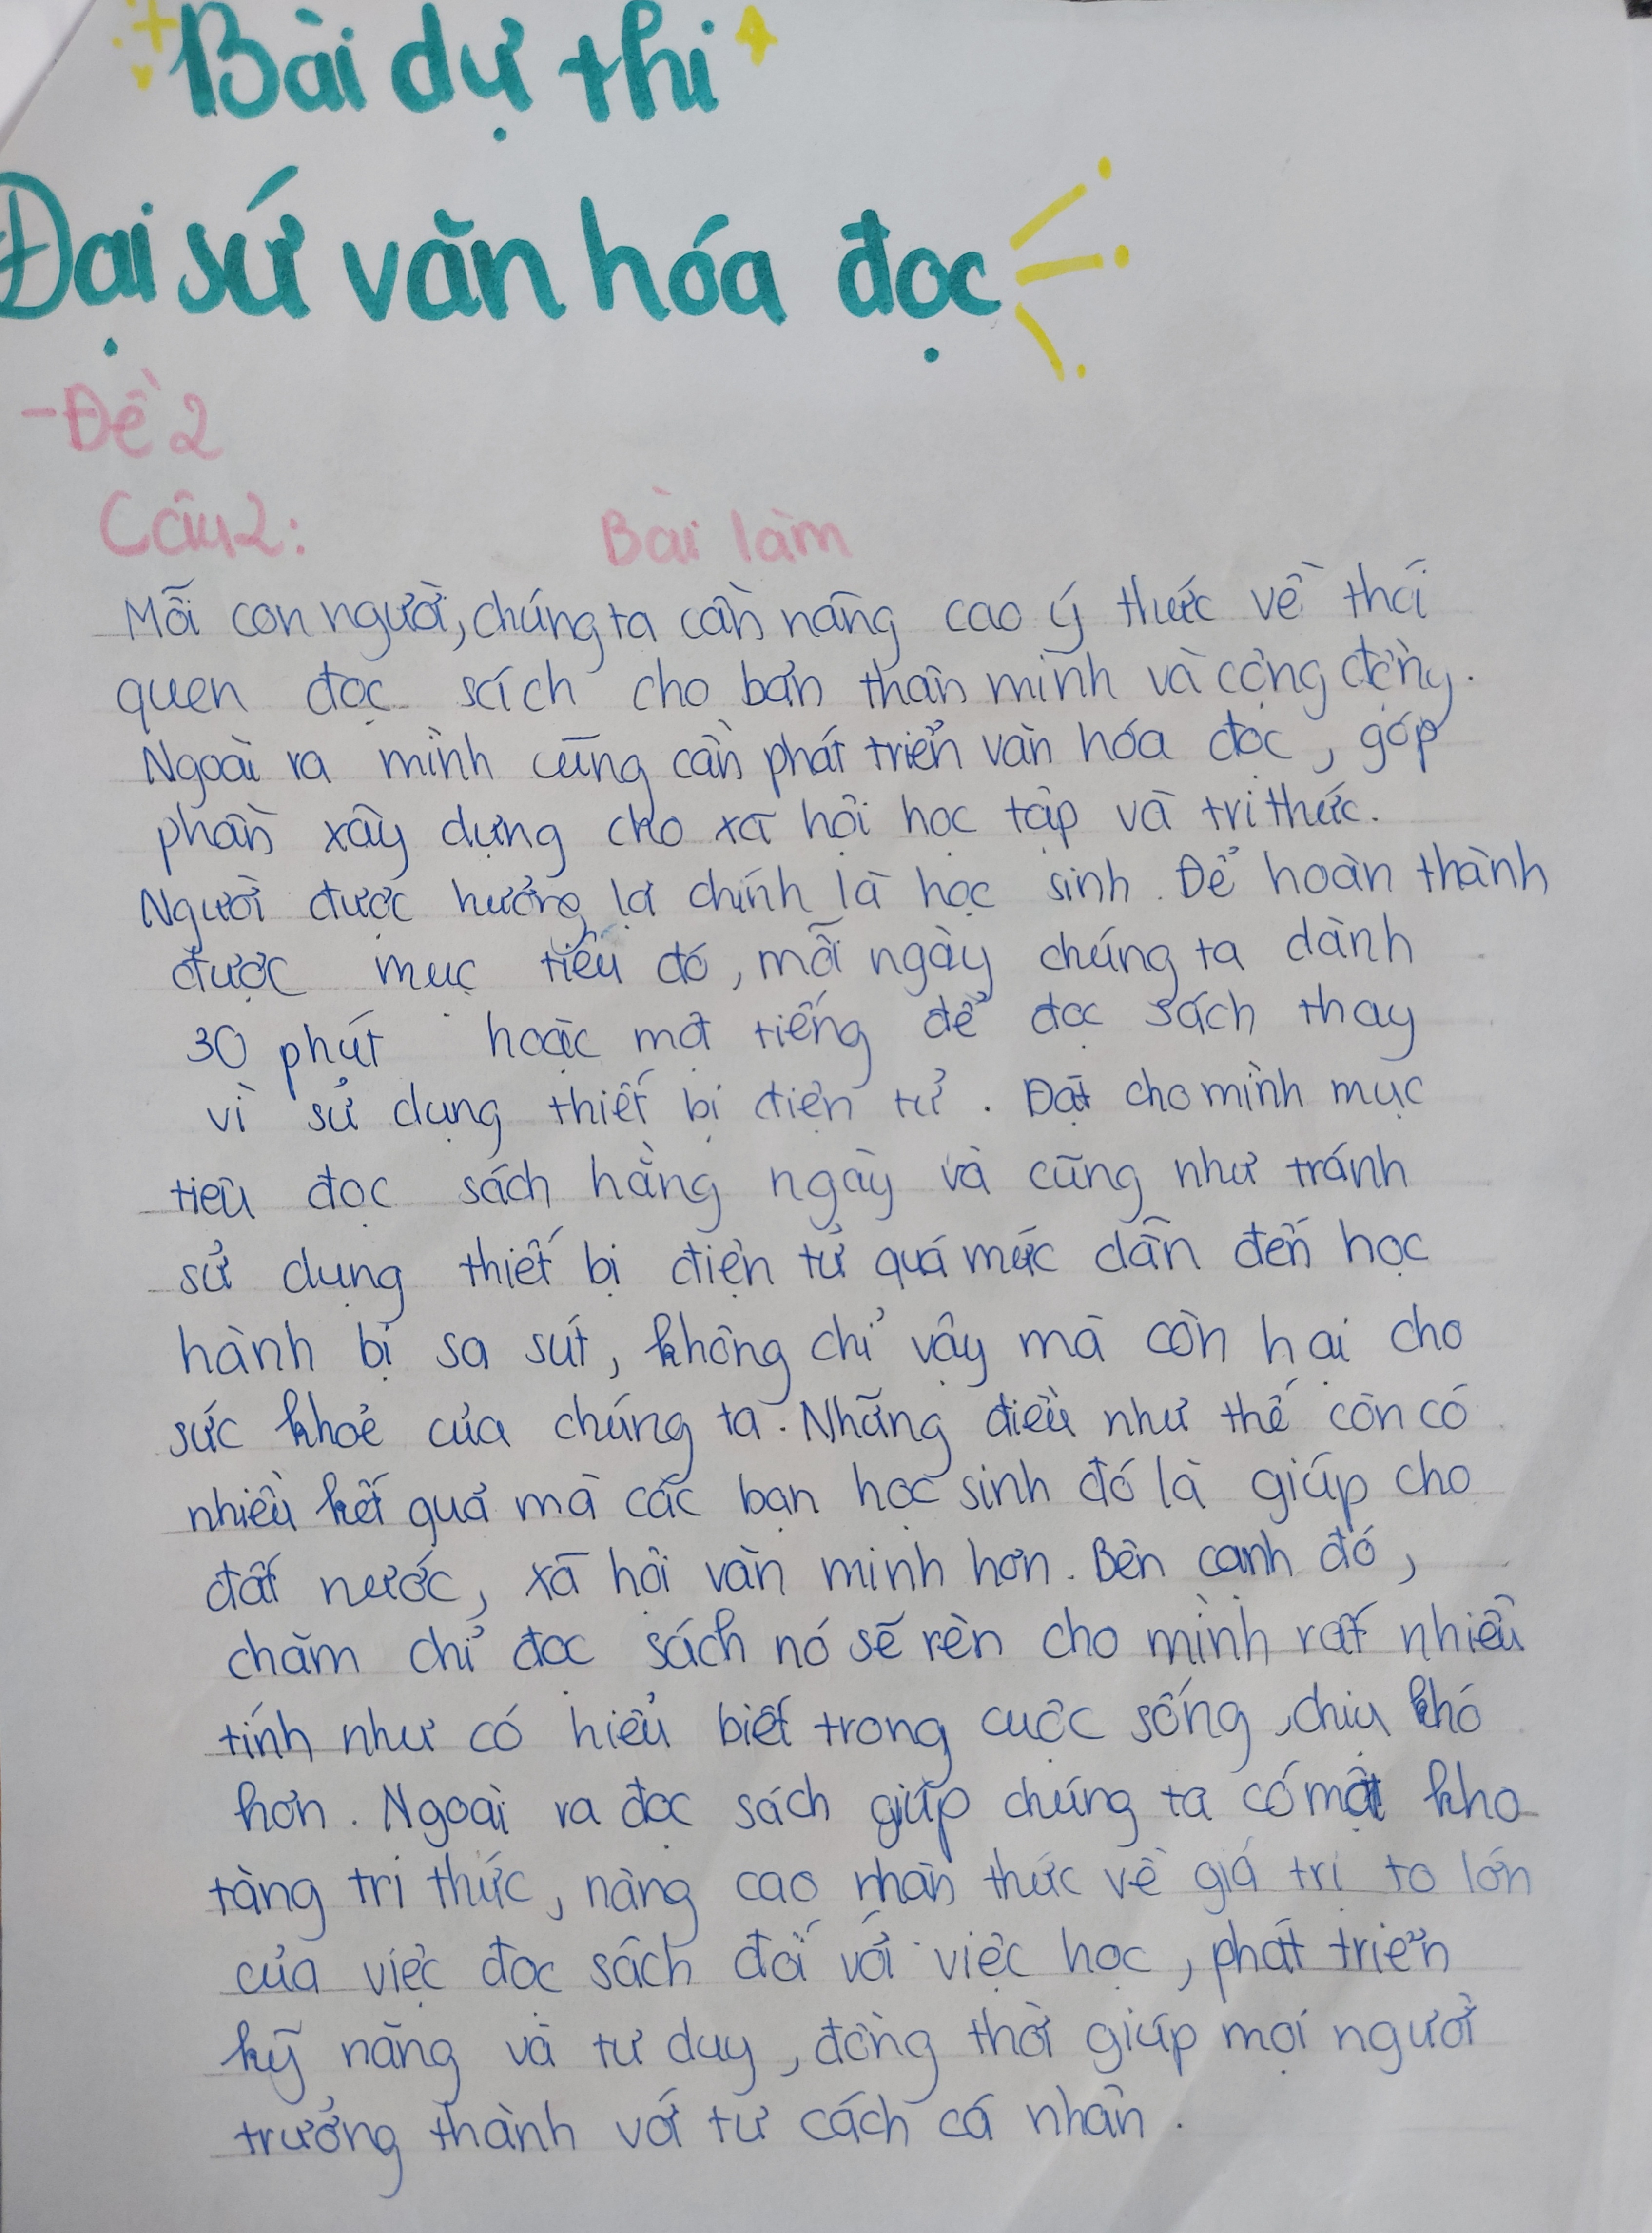 Bài dự thi
Đại sứ văn hóa đọc
-Đề 2
Câu 2: Bài làm
Mỗi con người, chúng ta cần nâng cao ý thức về thói
quen đọc sách cho bản thân mình và cộng đồng.
Ngoài ra mình cũng cần phát triển văn hóa đọc, góp
phần xây dựng cho xã hội học tập và tri thức.
Người được hưởng lợi chính là học sinh. Để hoàn thành
được mục tiêu đó, mỗi ngày chúng ta dành
30 phút hoặc một tiếng để đọc sách thay
vì sử dụng thiết bị điện tử. Đặt cho mình mục
tiêu đọc sách hằng ngày và cũng như tránh
sử dụng thiết bị điện tử quá mức dẫn đến học
hành bị sa sút, không chỉ vậy mà còn hại cho
sức khoẻ của chúng ta. Những điều như thế còn có
nhiều kết quả mà các bạn học sinh đó là giúp cho
đất nước, xã hội văn minh hơn. Bên cạnh đó,
chăm chỉ đọc sách nó sẽ rèn cho mình rất nhiều
tính như có hiểu biết trong cuộc sống, chịu khó
hơn. Ngoài ra đọc sách giúp chúng ta có một kho
tàng tri thức, nâng cao nhận thức về giá trị to lớn
của việc đọc sách đối với việc học, phát triển
kỹ năng và tư duy, đồng thời giúp mọi người
trưởng thành với tư cách cá nhân.